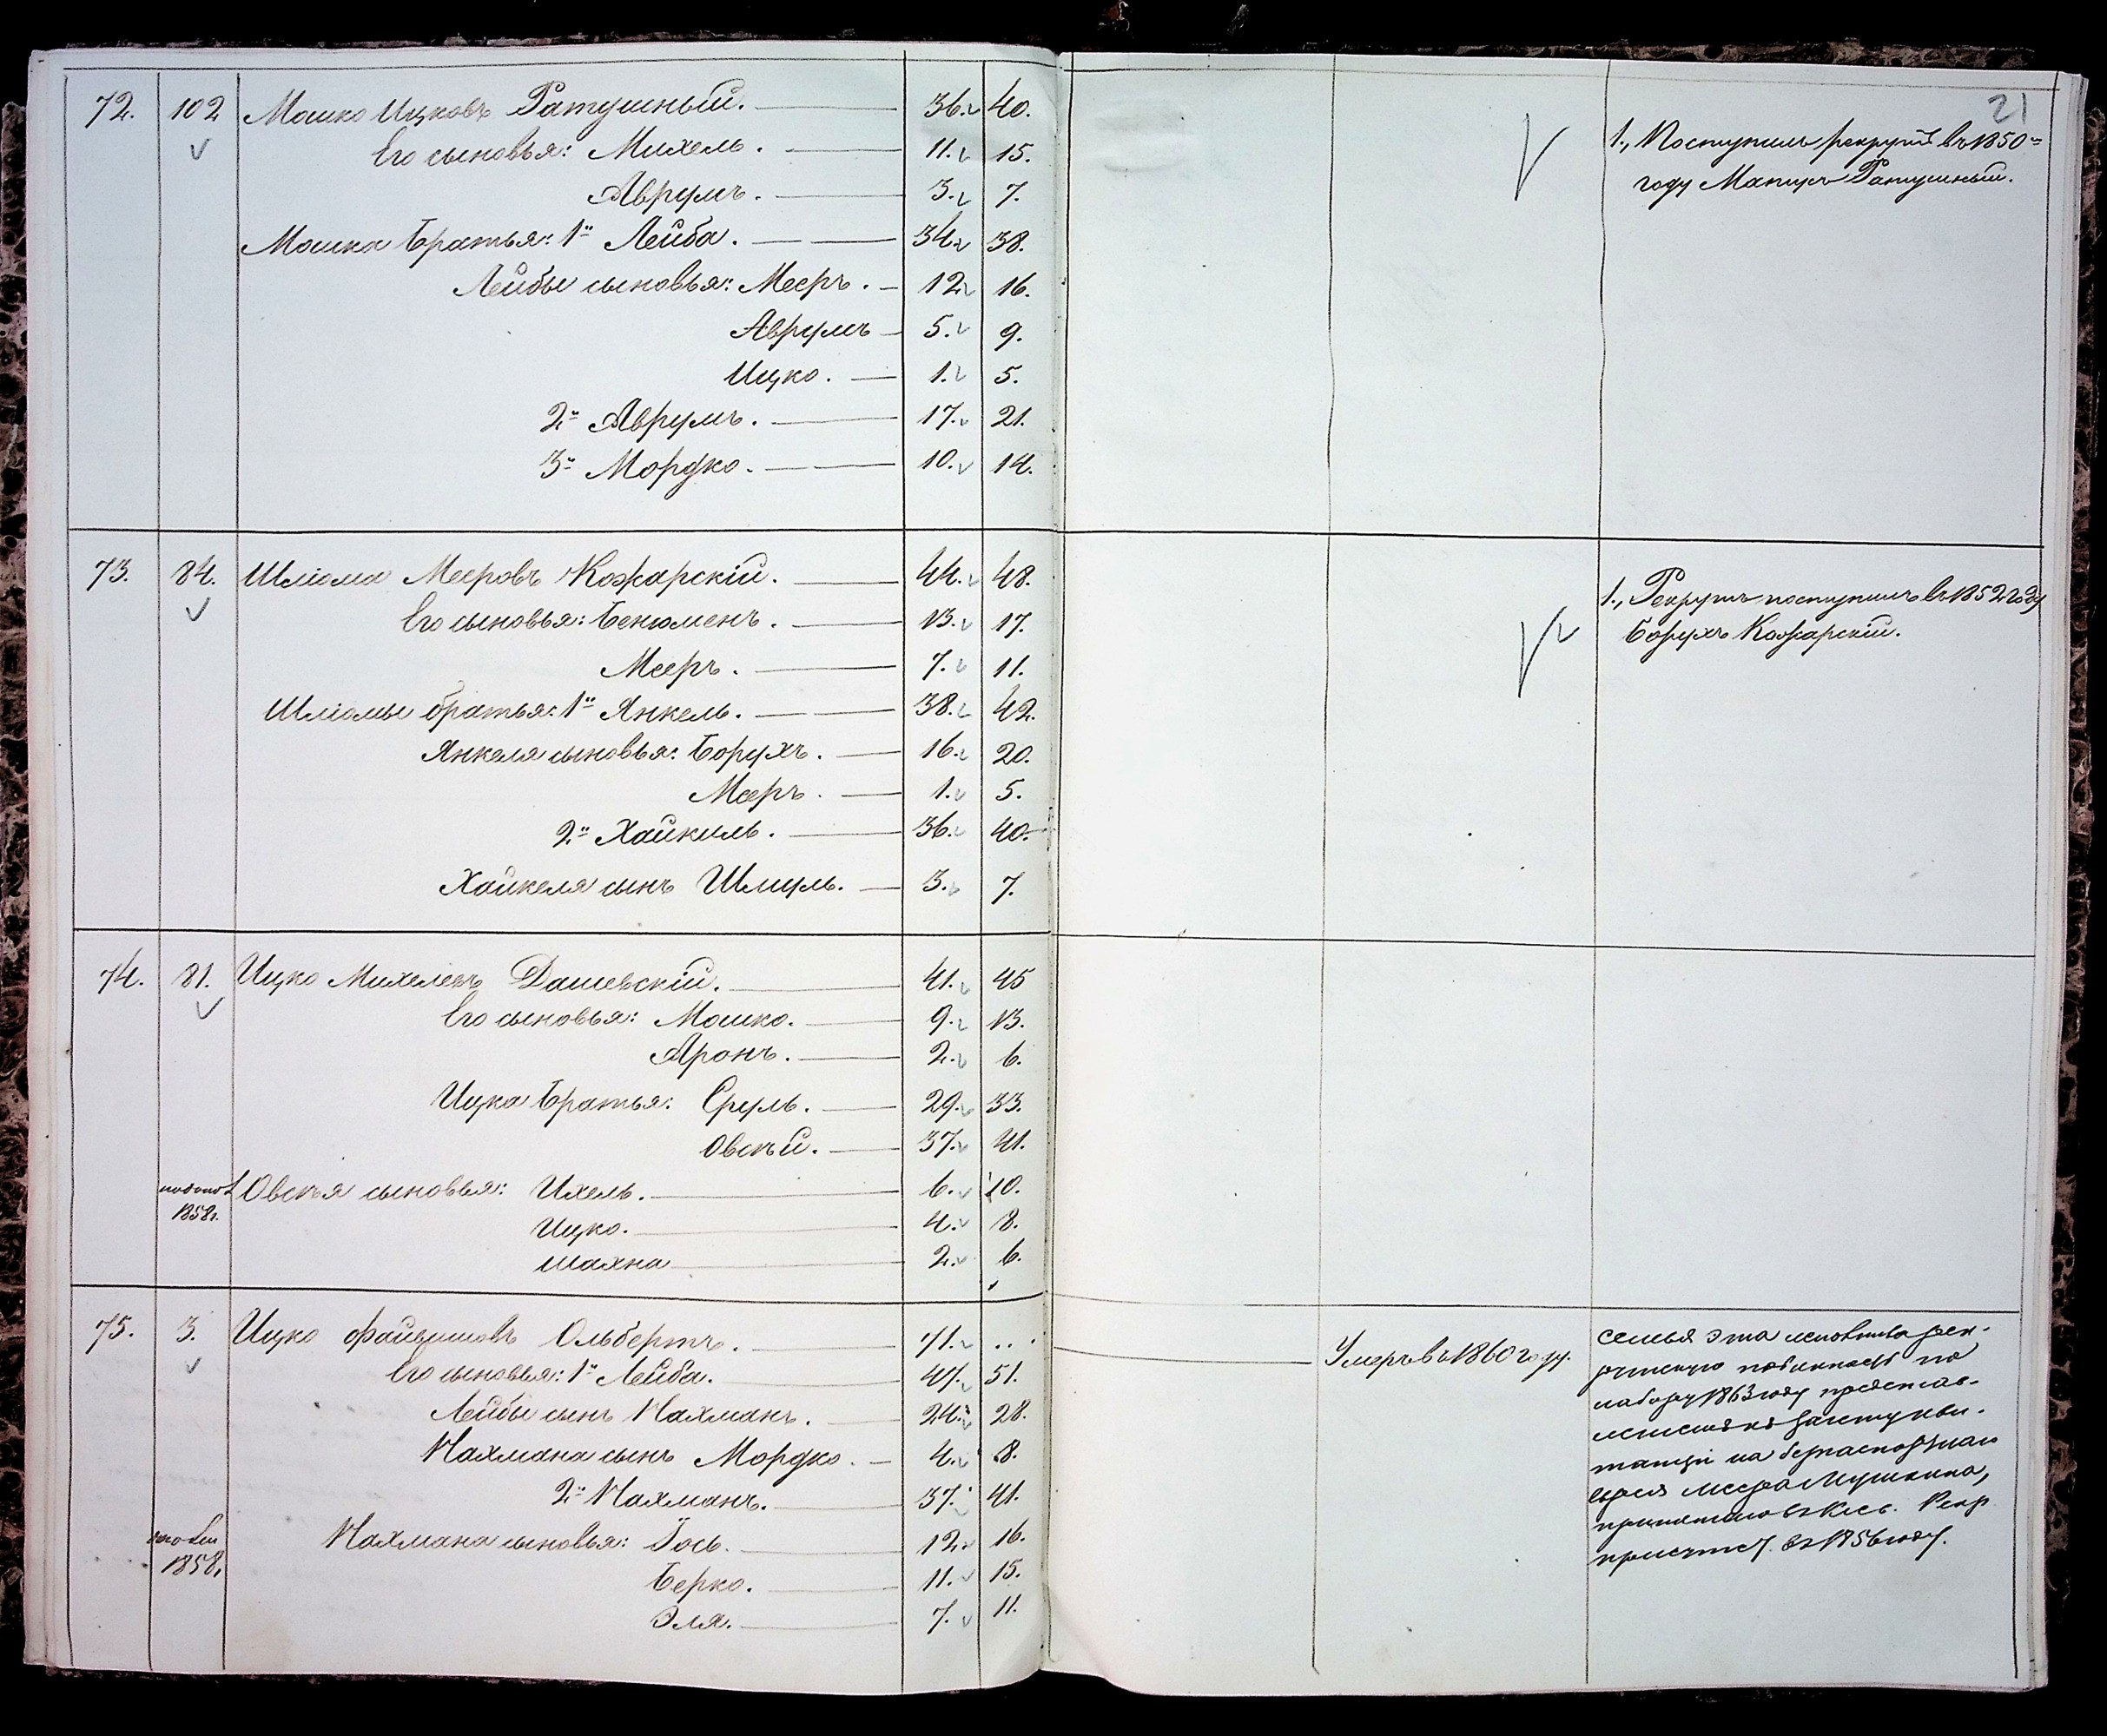 21
72. 102 Мошко Ицковъ Ратушный. 36. 40.
Его сыновья: Михель. 11. 15.
Аврумъ. 3. 7.
Мошка братья: 1й Лейба. 34. 38.
Лейбы сыновья: Мееръ. 12. 16.
Аврумъ 5. 9.
Ицко. 1. 5.
2й Аврумъ. 17. 21.
3й Мордко. 10. 14.
1., Поступилъ рекрутъ въ 1850=
году Мапухъ Ратушный.
73. 84. Шліома Мееровъ Кожарскій. 44. 48.
Его сыновья: Бенюменъ. 13. 17.
Мееръ. 7. 11.
Шліомы братья: 1й Янкель. 38. 42.
Янкеля сыновья: Борухъ. 16. 20.
Мееръ. 1. 5.
2й Хайкиль. 36. 40.
Хайкеля сынъ Шмуль. 3. 7.
1., Рекрутъ поступилъ въ 1852 году
Борухъ Кожарскій.
74. 81. Ицко Михелевъ Дашевскій. 41. 45
Его сыновья: Мошко. 9. 13.
Аронъ. 2. 6.
Ицка братья: Сруль. 29. 33.
Овсѣй. 37. 41.
Овсѣя сыновья: Ихель. 6. 10.
1858г. Ицко. 4. 8.
Шахна 2. 6.
75. 3. Ицко Файвишовъ Ольбертъ. 71. ...
Его сыновья: 1й Лейба. 47. 51.
Лейбы сынъ Нахманъ. 24. 28.
Нахмана сынъ Мордко. 4. 8.
2й Нахманъ. 37. 41.
Нахмана сыновья: Іось. 12. 16.
1858, Берко. 11. 15.
Эля. 7. 11.
Умеръ въ 1860 году.
Семья эта исполнила рек-
рутскую повинность по
набору 1863 году представ-
на безпаспортнаго
еврея Меера Мушкина,
въ 1856 году.